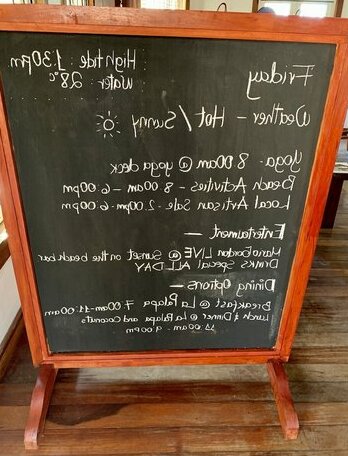 Friday
High tide: 1.30pm
Water: 28°c
Weather - Hot/Sunny
Yoga - 8.00am @ yoga deck
Beach Activities - 8.00am - 6.00pm
Local Artisan Sale - 2.00pm - 6.00pm
Entertainment
Mario Gordon LIVE @ Sunset on the beach bar
Drinks Special ALL DAY
Dining Options -
Breakfast @ La Palapa 7.00am-11.00am
Lunch & Dinner @ La Palapa and Coconuts
11.00am - 9.00pm